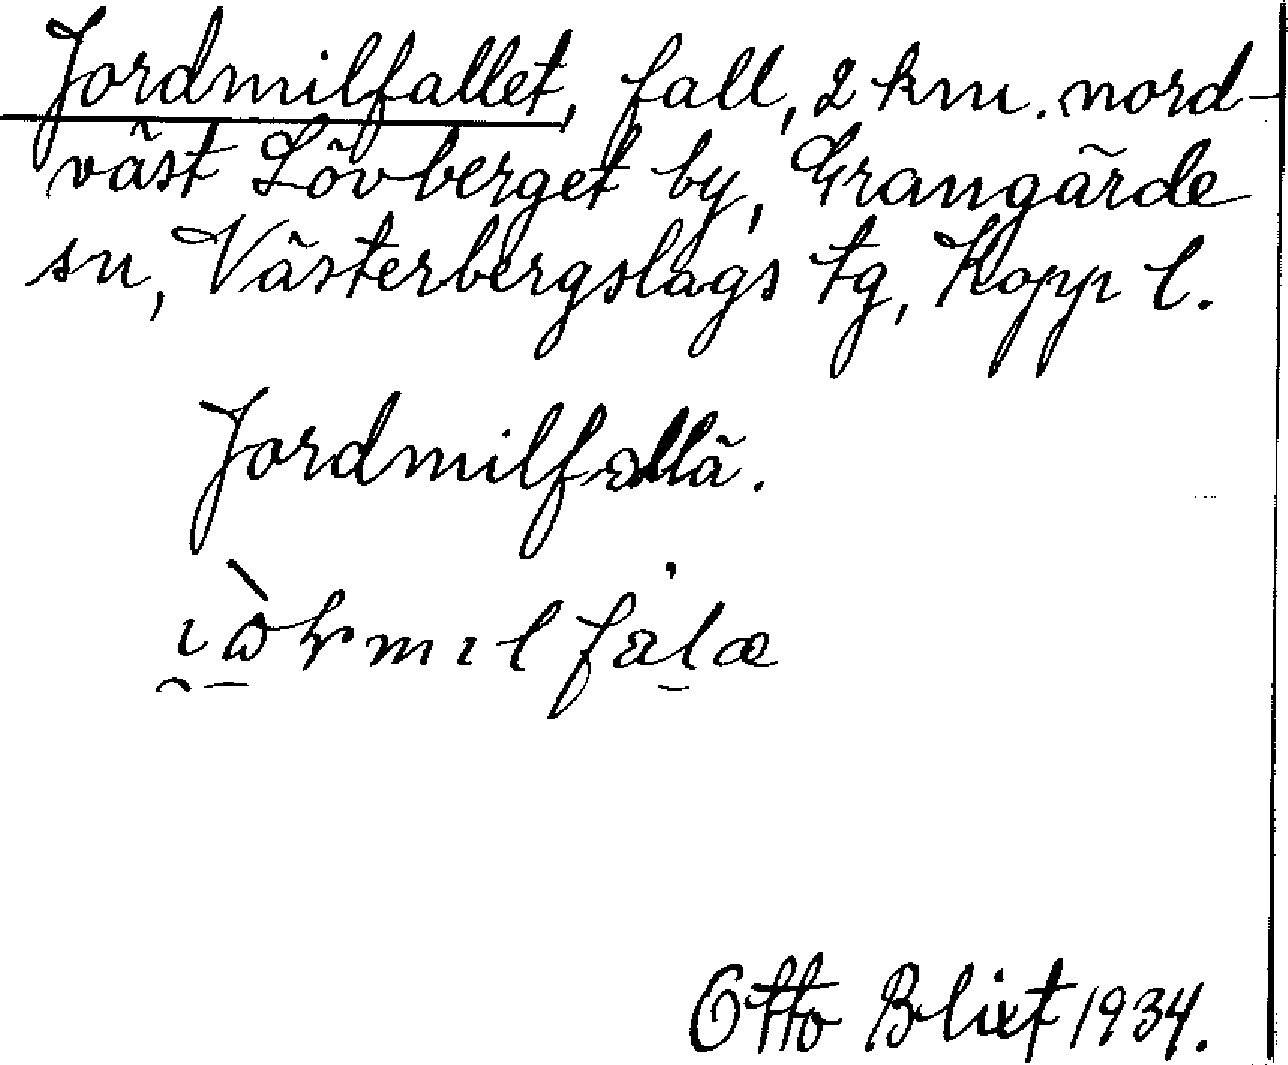 Jordmilfallet, fall, 2 km. nord-
väst Lövberget by, Grangärde
sn, Västerbergslags tg, Kopp l.
Jordmilfallä.
Otto Blixt 1934.